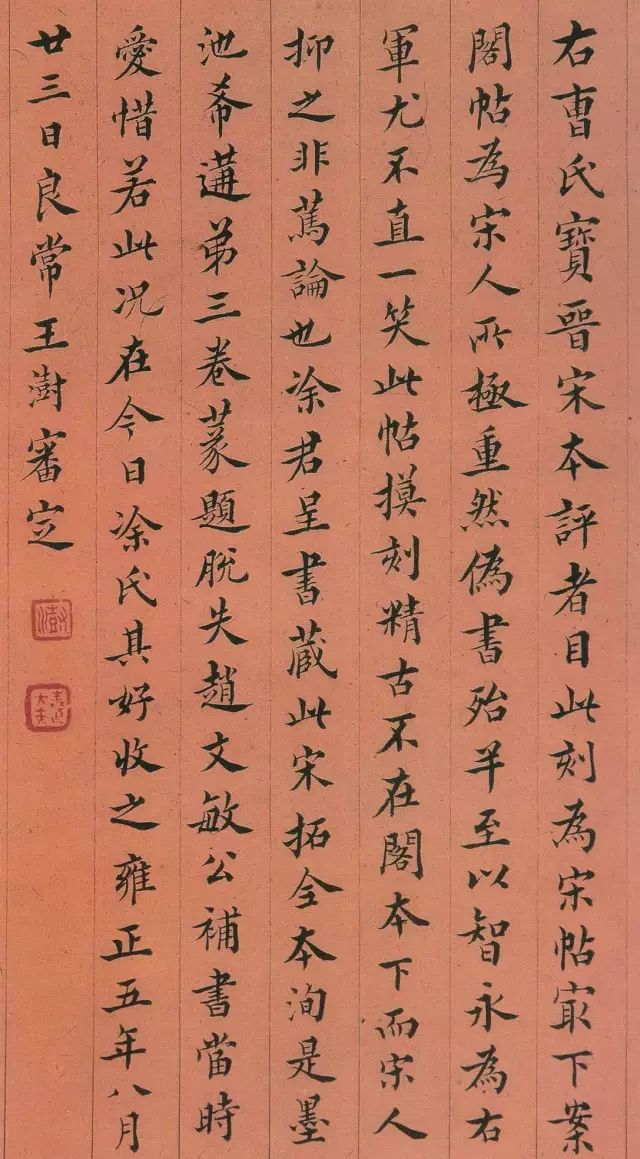 右曹氏寶晉宋本評者目此刻為宋帖寂下案
閣帖為宋人所極重然偽書殆半至以智永為右
軍尤不直一笑此帖摸刻精古不在閣本下而宋人
抑之非篤論也凃君呈書藏此宋拓全本洵是墨
池希遘弟三卷篆題脫失趙文敏公補書當時
愛惜若此况在今日凃氏其好收之雍正五年八月
廿三日良常王澍審定
澍